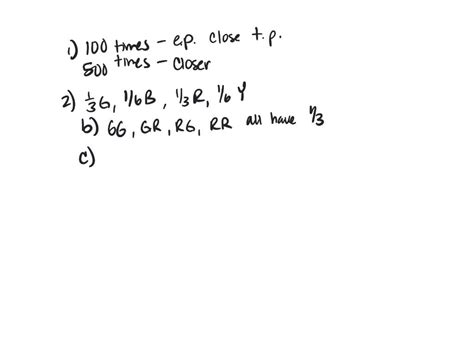 1) 100 times - e.p. close t.p.
500 times - closer
2) 1/3 G, 1/6 B, 1/3 R, 1/6 Y
b) GG, GR, RG, RR all have 1/3
c)